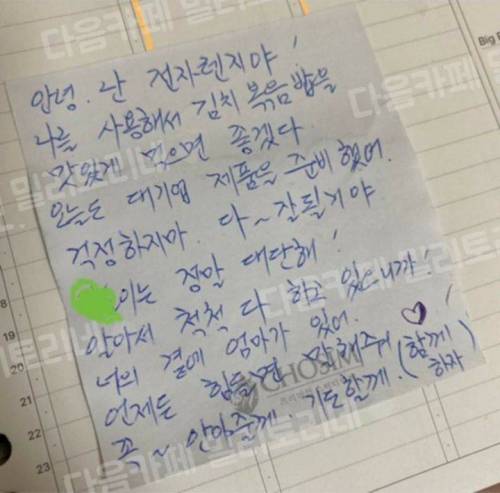 안녕. 난 전자렌지야!
나를 사용해서 김치볶음밥을
맛있게 먹으면 좋겠다
오늘도 대기업 제품을 준비했어.
걱정하지마. 다~잘될거야
이는 정말 대단해!
알아서 척척 다 하고 있으니까!
너의 곁에 엄마가 있어.
언제든 힘들면 말해주기 (함께
꼭~ 안아줄께. 기도할께. 하자)
CHOSIM
Big
8
19
20
21
22
23
다음카페 밀리토리네